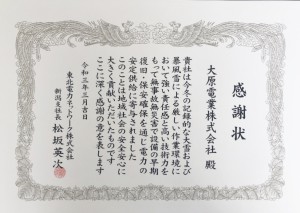 感謝状
大原電業株式会社 殿
貴社は今冬の記録的な大雪および
暴風雪による厳しい作業環境に
おいて強い責任感と高い技術力を
もって無事故無災害で設備の早期
復旧・保安確保を通じ電力の
安定供給に寄与されました
このことは地域社会の安全安心に
大きく貢献いただいたものです
ここに深く感謝の意を表します
令和三年三月吉日
東北電力ネットワーク株式会社
新潟支社長 松坂英次